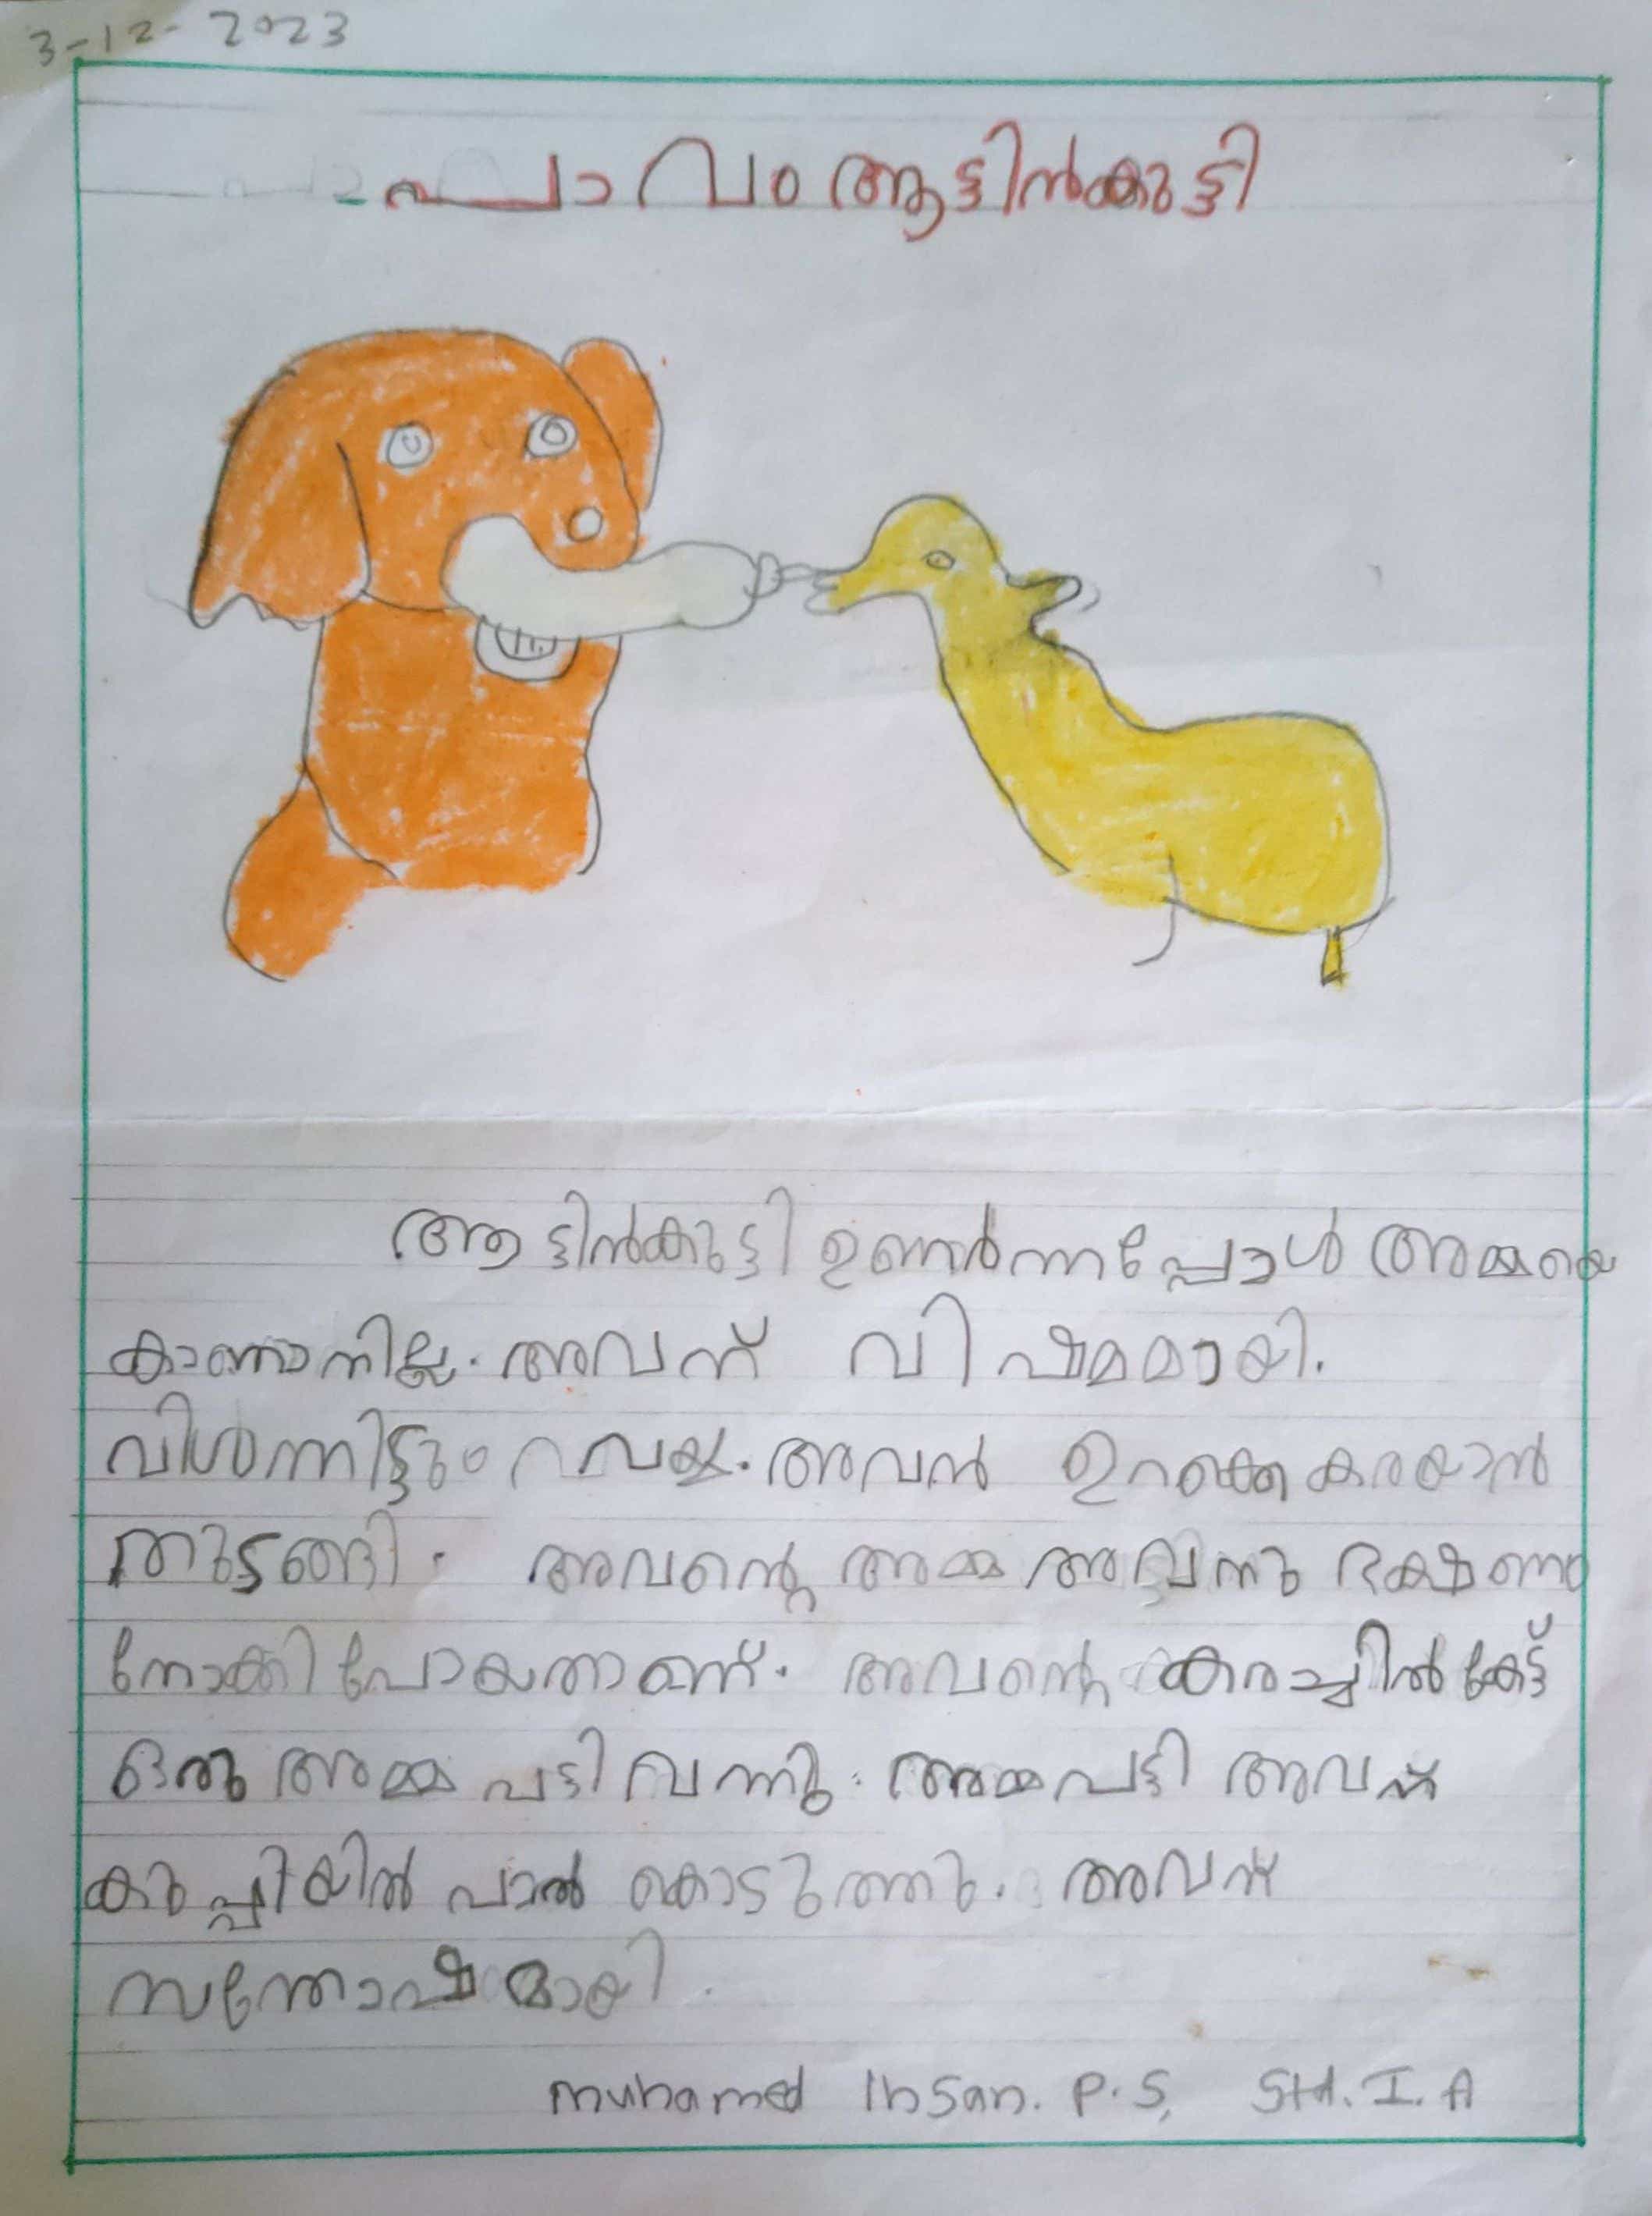 3-12-2023
പാവം ആട്ടിൻകുട്ടി
ആട്ടിൻകുട്ടി ഉണർന്നപ്പോൾ അമ്മയെ
കാണാനില്ല. അവന് വിഷമമായി.
വിശന്നിട്ടും വയ്യ. അവൻ ഉറക്കെ കരയാൻ
തുടങ്ങി. അവന്റെ അമ്മ അവനു ഭക്ഷണം
നോക്കി പോയതാണ്. അവന്റെ കരച്ചിൽ കേട്ട്
ഒരു അമ്മ പട്ടി വന്നു. അമ്മപട്ടി അവന്
കുപ്പിയിൽ പാൽ കൊടുത്തു. അവന്
സന്തോഷമായി.
muhamed Ihsan. P.S, Std. I. A